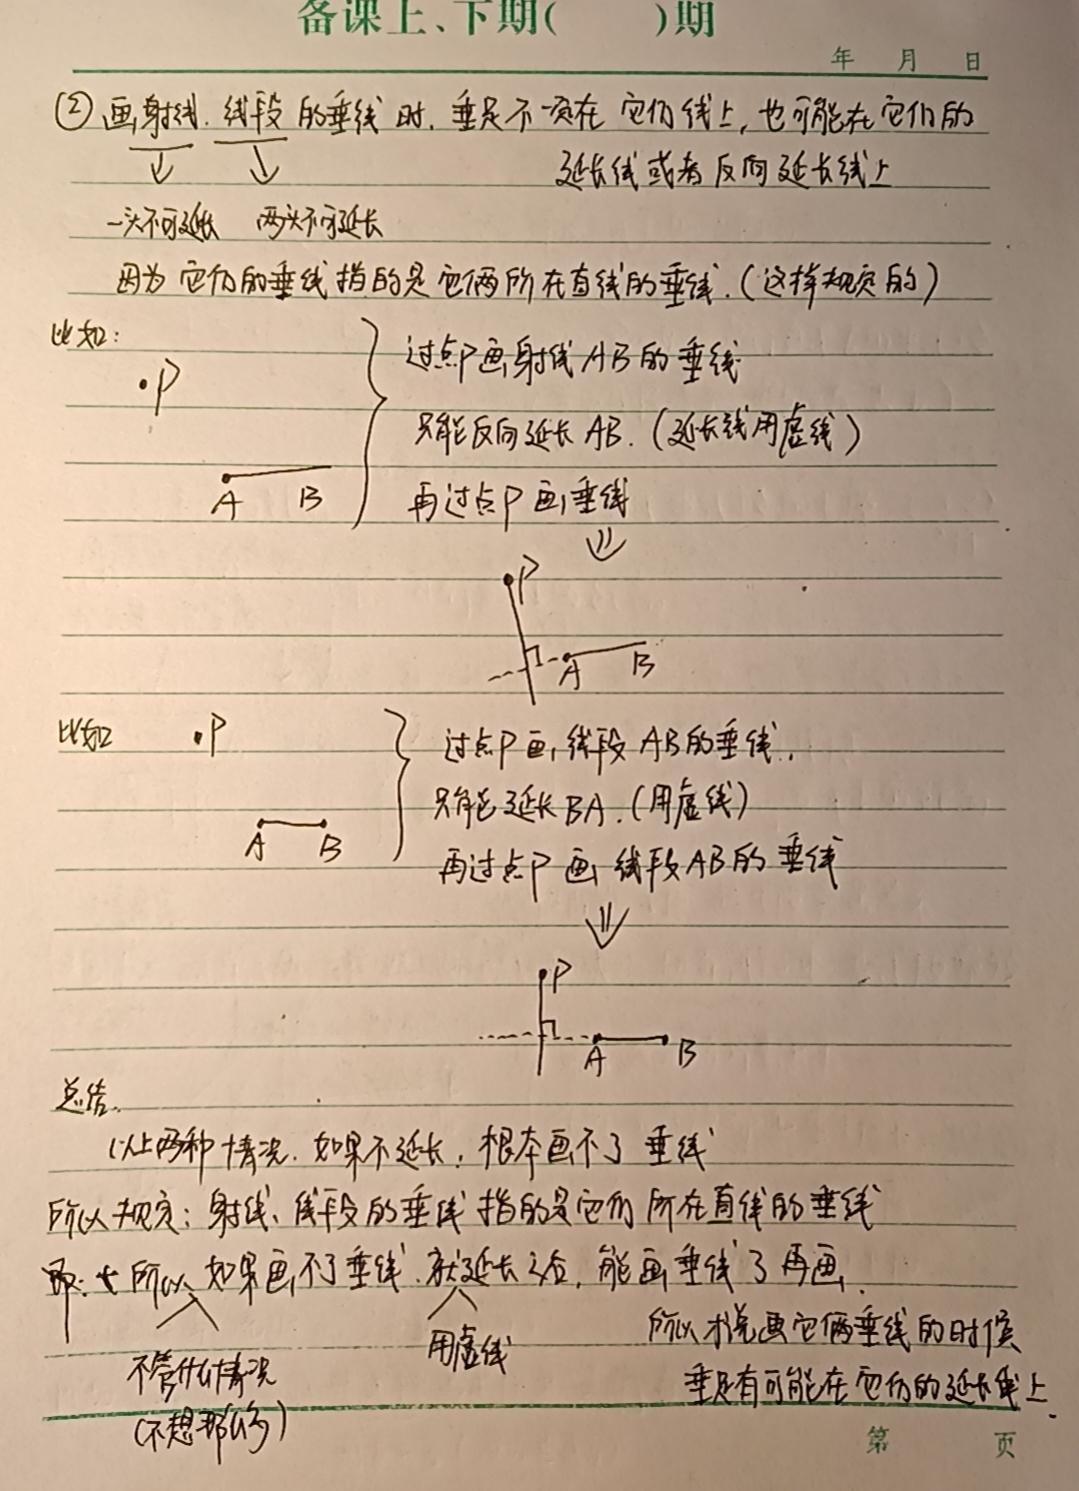 备课上、下期( )期
年 月 日
② 画射线、线段的垂线时，垂足不一定在它们线上，也可能在它们的
延长线或者反向延长线上
一头不可延长 两头不可延长
因为它们的垂线指的是它俩所在直线的垂线.(这样规定的)
比如:
P
过点P画射线AB的垂线
只能反向延长AB.(延长线用虚线)
A B
再过点P画垂线
P
A B
比如 P
过点P画线段AB的垂线.
只能延长BA.(用虚线)
A B
再过点P画线段AB的垂线
P
A B
总结.
以上两种情况.如果不延长,根本画不了垂线
所以规定:射线、线段的垂线指的是它们所在直线的垂线
即: 所以如果画不了垂线.就延长之后,能画垂线了再画.
用虚线
不管什么情况
(不想那么多)
所以才说画它俩垂线的时候
垂足有可能在它们的延长线上.
第 页